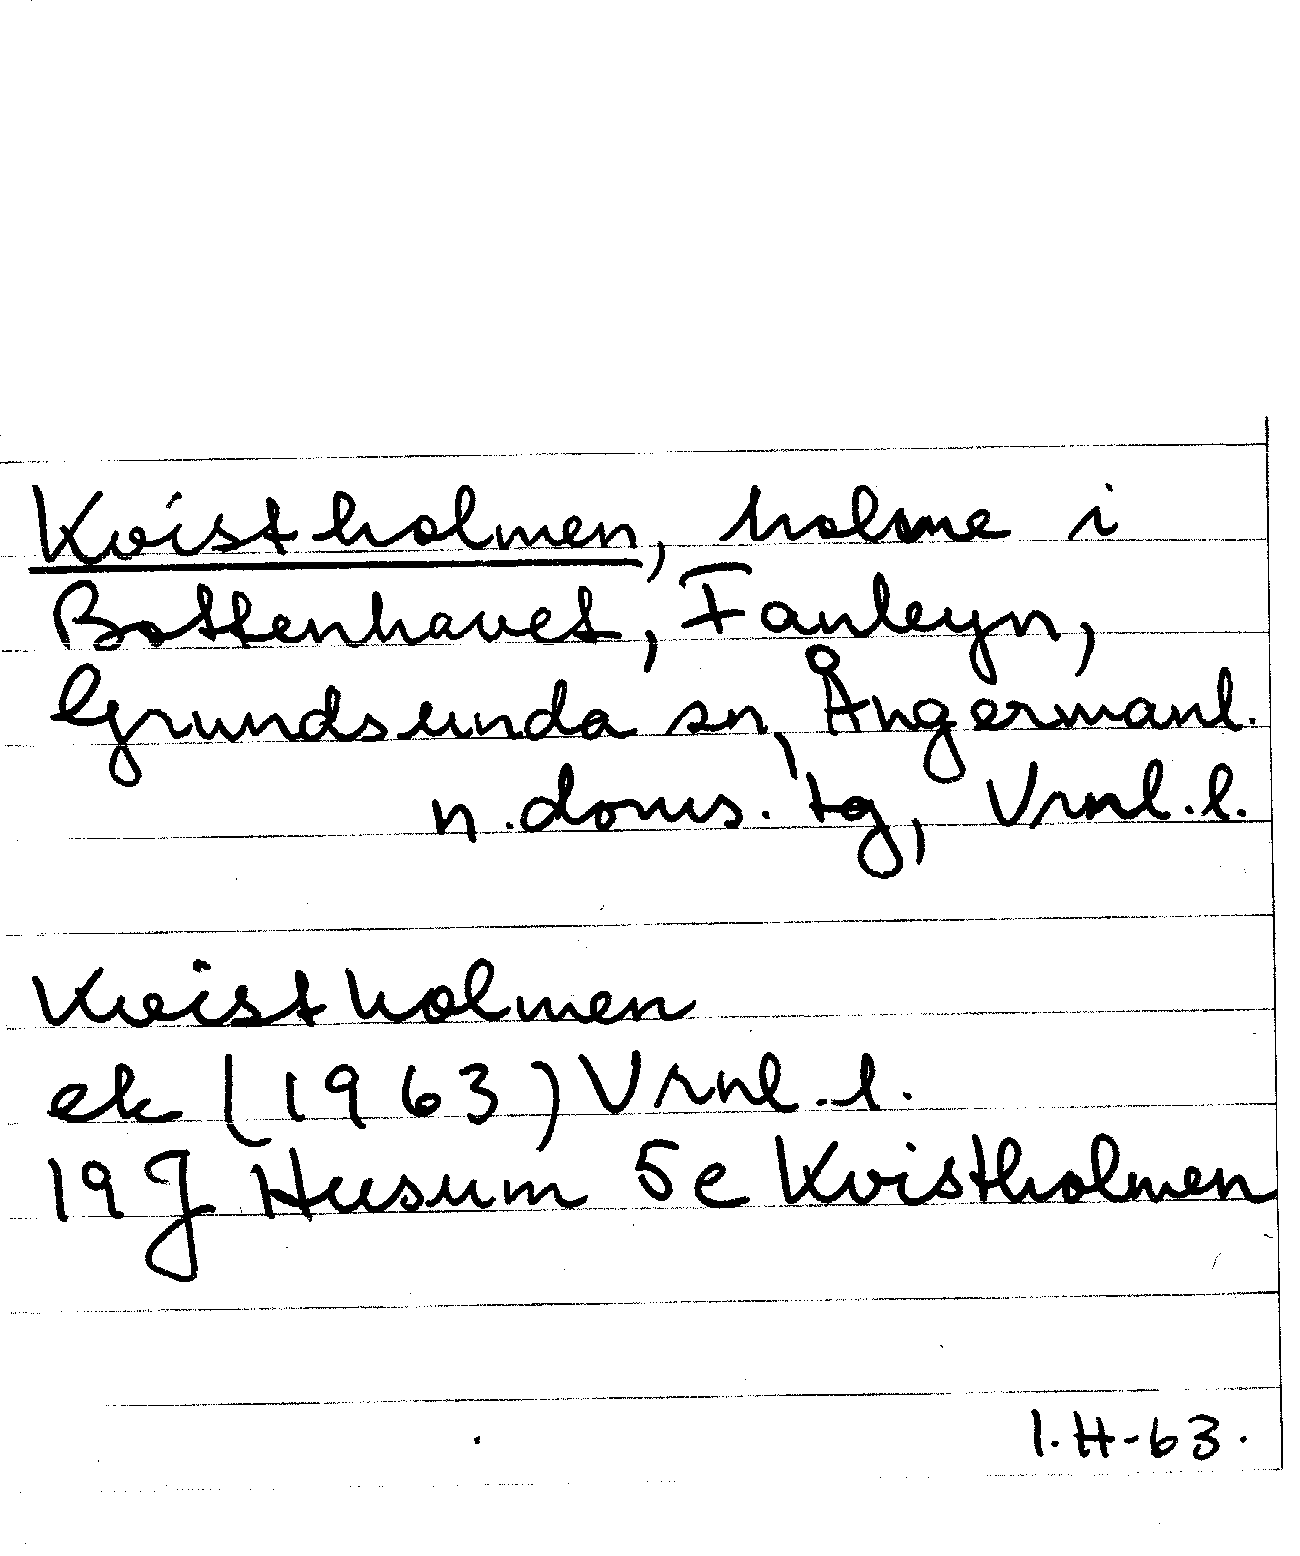 Kvistholmen, holme i
Bottenhavet, Fanbyn,
Grundsunda sn, Ångermanl.
n. doms. tg, Vrnl. l.
Kvistholmen
ek (1963) Vrnl. l.
19 J Husum 5e Kvistholmen
I. H-63.